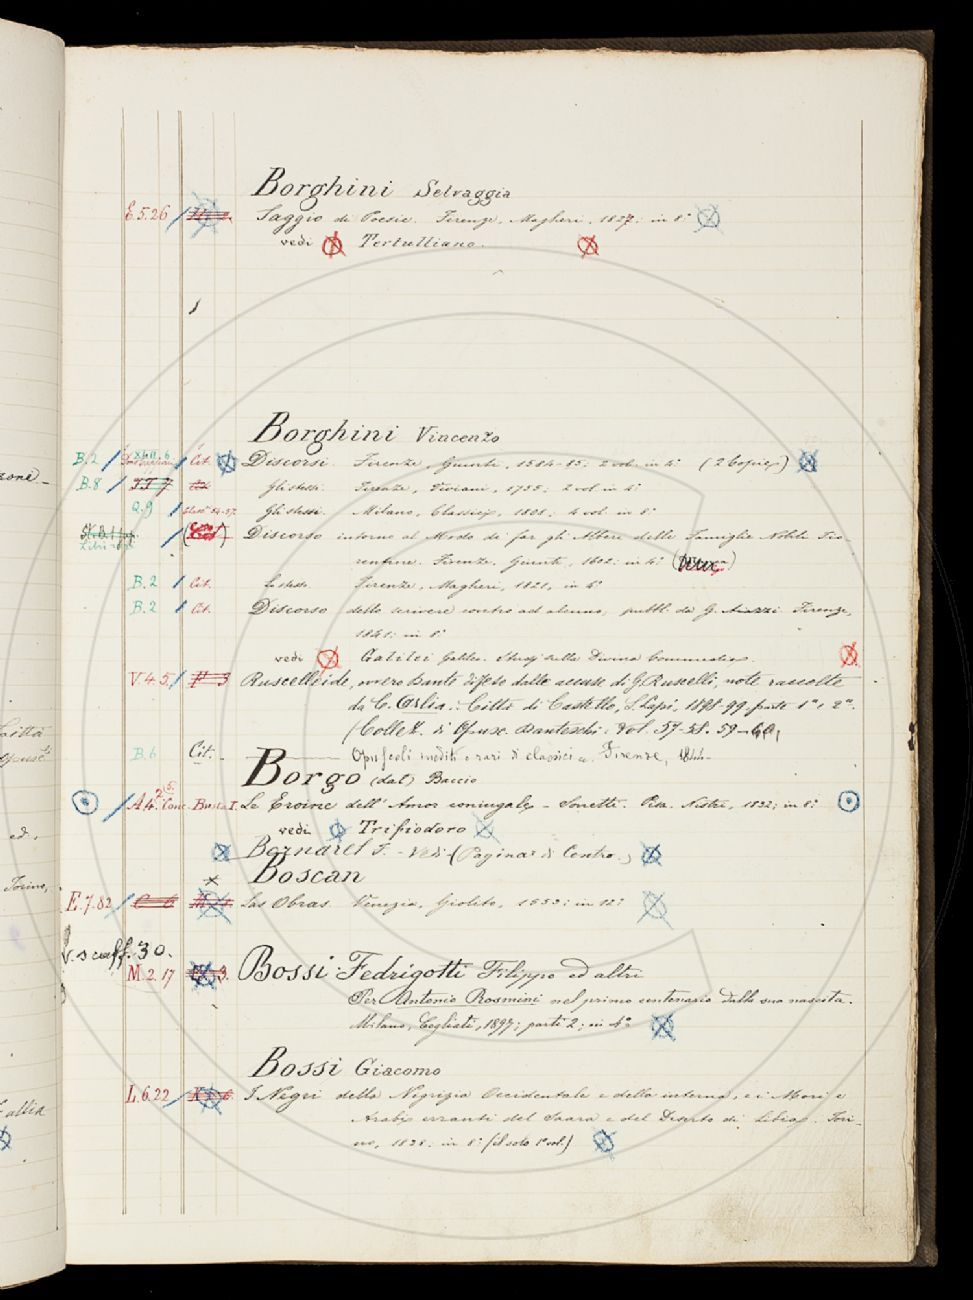 Borghini Selvaggia
E.5.26 Saggio di Poesie. Firenze, Magheri, 1827: in 8°
vedi Tertulliano.
Borghini Vincenzo
B.2 Cit. Discorsi. Firenze, Giunti, 1584-85: 2 vol. in 4° (2 copie)
B.8 Gli stessi. Firenze, Viviani, 1755: 2 vol. in 4°
Q.9 Gli stessi. Milano, Classici, 1808: 4 vol. in 8°
Discorso intorno al Modo di far gli Alberi delle Famiglie Nobili Fio-
rentine. Firenze, Giunti, 1602: in 4°
B.2 Cit. Lo stesso. Firenze, Magheri, 1821, in 4°
B.2 Cit. Discorso dello scrivere contro ad alcuno, pubbl. da G. Aiazzi Firenze,
1841: in 8°
vedi Galilei Galileo. Studj sulla Divina Commedia.
V.4.5. Ruscelleide, ovvero Dante difeso dalle accuse di G. Ruscelli, note raccolte
da C. Arlia.: Città di Castello, S. Lapi, 1898-99. parte 1ª e 2ª.
(Collez. di Opusc. Danteschi: Vol. 57-58. 59-60,
B.6 Cit. Opuscoli inediti o rari di classici Firenze,
Borgo (dal) Baccio
A4. Busta I. Le Eroine dell' Amor coniugale - Sonetti. Pisa. Nistri, 1832; in 8°
vedi Trifiodoro
Bornaret F. - Vedi (Pagina di Centro.)
Boscan
E.7.82 Las Obras. Venezia, Giolito, 1553: in 12°
V. scaff. 30.
M.2.17 Bossi-Fedrigotti Filippo ed altri
Per Antonio Rosmini nel primo centenario dalla sua nascita.
Milano, Cogliati, 1897; parti 2; in 4°
Bossi Giacomo
L.6.22 I Negri della Negrizia Occidentale e della interna, e i Mori e
Arabi erranti del Saara e del Deserto di Libia. Tori-
no, 1838: in 8° (il solo 1° vol.)